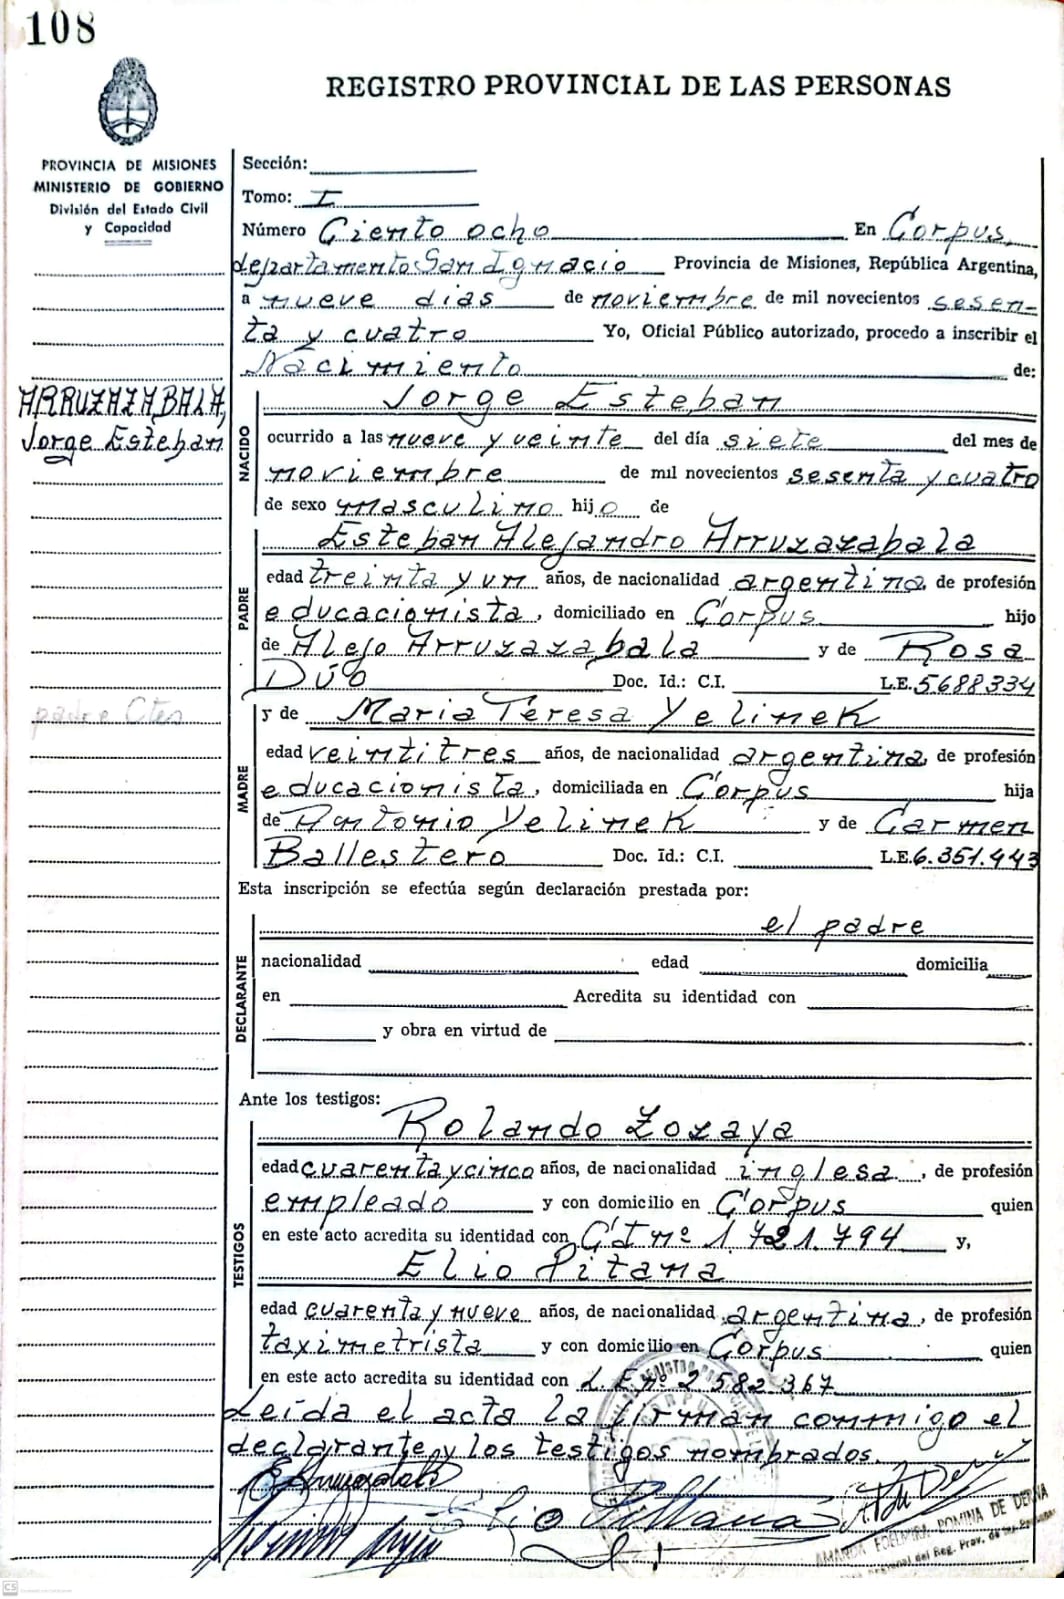 108
REGISTRO PROVINCIAL DE LAS PERSONAS
PROVINCIA DE MISIONES
MINISTERIO DE GOBIERNO
División del Estado Civil
y Capacidad
Sección:
Tomo: I
Número Ciento ocho En Corpus,
departamento San Ignacio Provincia de Misiones, República Argentina,
a nueve dias de noviembre de mil novecientos sesen-
ta y cuatro Yo, Oficial Público autorizado, procedo a inscribir el
Nacimiento de:
ARRUZAZABALA,
Jorge Esteban
NACIDO
Jorge Esteban
ocurrido a las nueve y veinte del día siete del mes de
noviembre de mil novecientos sesenta y cuatro
de sexo masculino hijo de
PADRE
Esteban Alejandro Arruzazabala
edad treinta y un años, de nacionalidad argentina, de profesión
educacionista, domiciliado en Corpus hijo
de Alejo Arruzazabala y de Rosa
Dúo Doc. Id.: C.I. L.E. 5688334
padre Ctes
MADRE
y de Maria Teresa Yelinek
edad veintitres años, de nacionalidad argentina, de profesión
educacionista, domiciliada en Corpus hija
de Antonio Yelinek y de Carmen
Ballestero Doc. Id.: C.I. L.E. 6.351.443
Esta inscripción se efectúa según declaración prestada por:
DECLARANTE
el padre
nacionalidad edad domicilia
en Acredita su identidad con
y obra en virtud de
Ante los testigos:
TESTIGOS
Rolando Zozaya
edad cuarenta y cinco años, de nacionalidad inglesa, de profesión
empleado y con domicilio en Corpus quien
en este acto acredita su identidad con C I nº 1.721.794 y,
Elio Pitana
edad cuarenta y nueve años, de nacionalidad argentina, de profesión
taximetrista y con domicilio en Corpus quien
en este acto acredita su identidad con L.E nº 2 582.367
Leída el acta la firman conmigo el
declarante y los testigos nombrados.
AMANDA EDELMIRA DOMINA DE DERNA
del Reg. Prov. de las Personas
CS